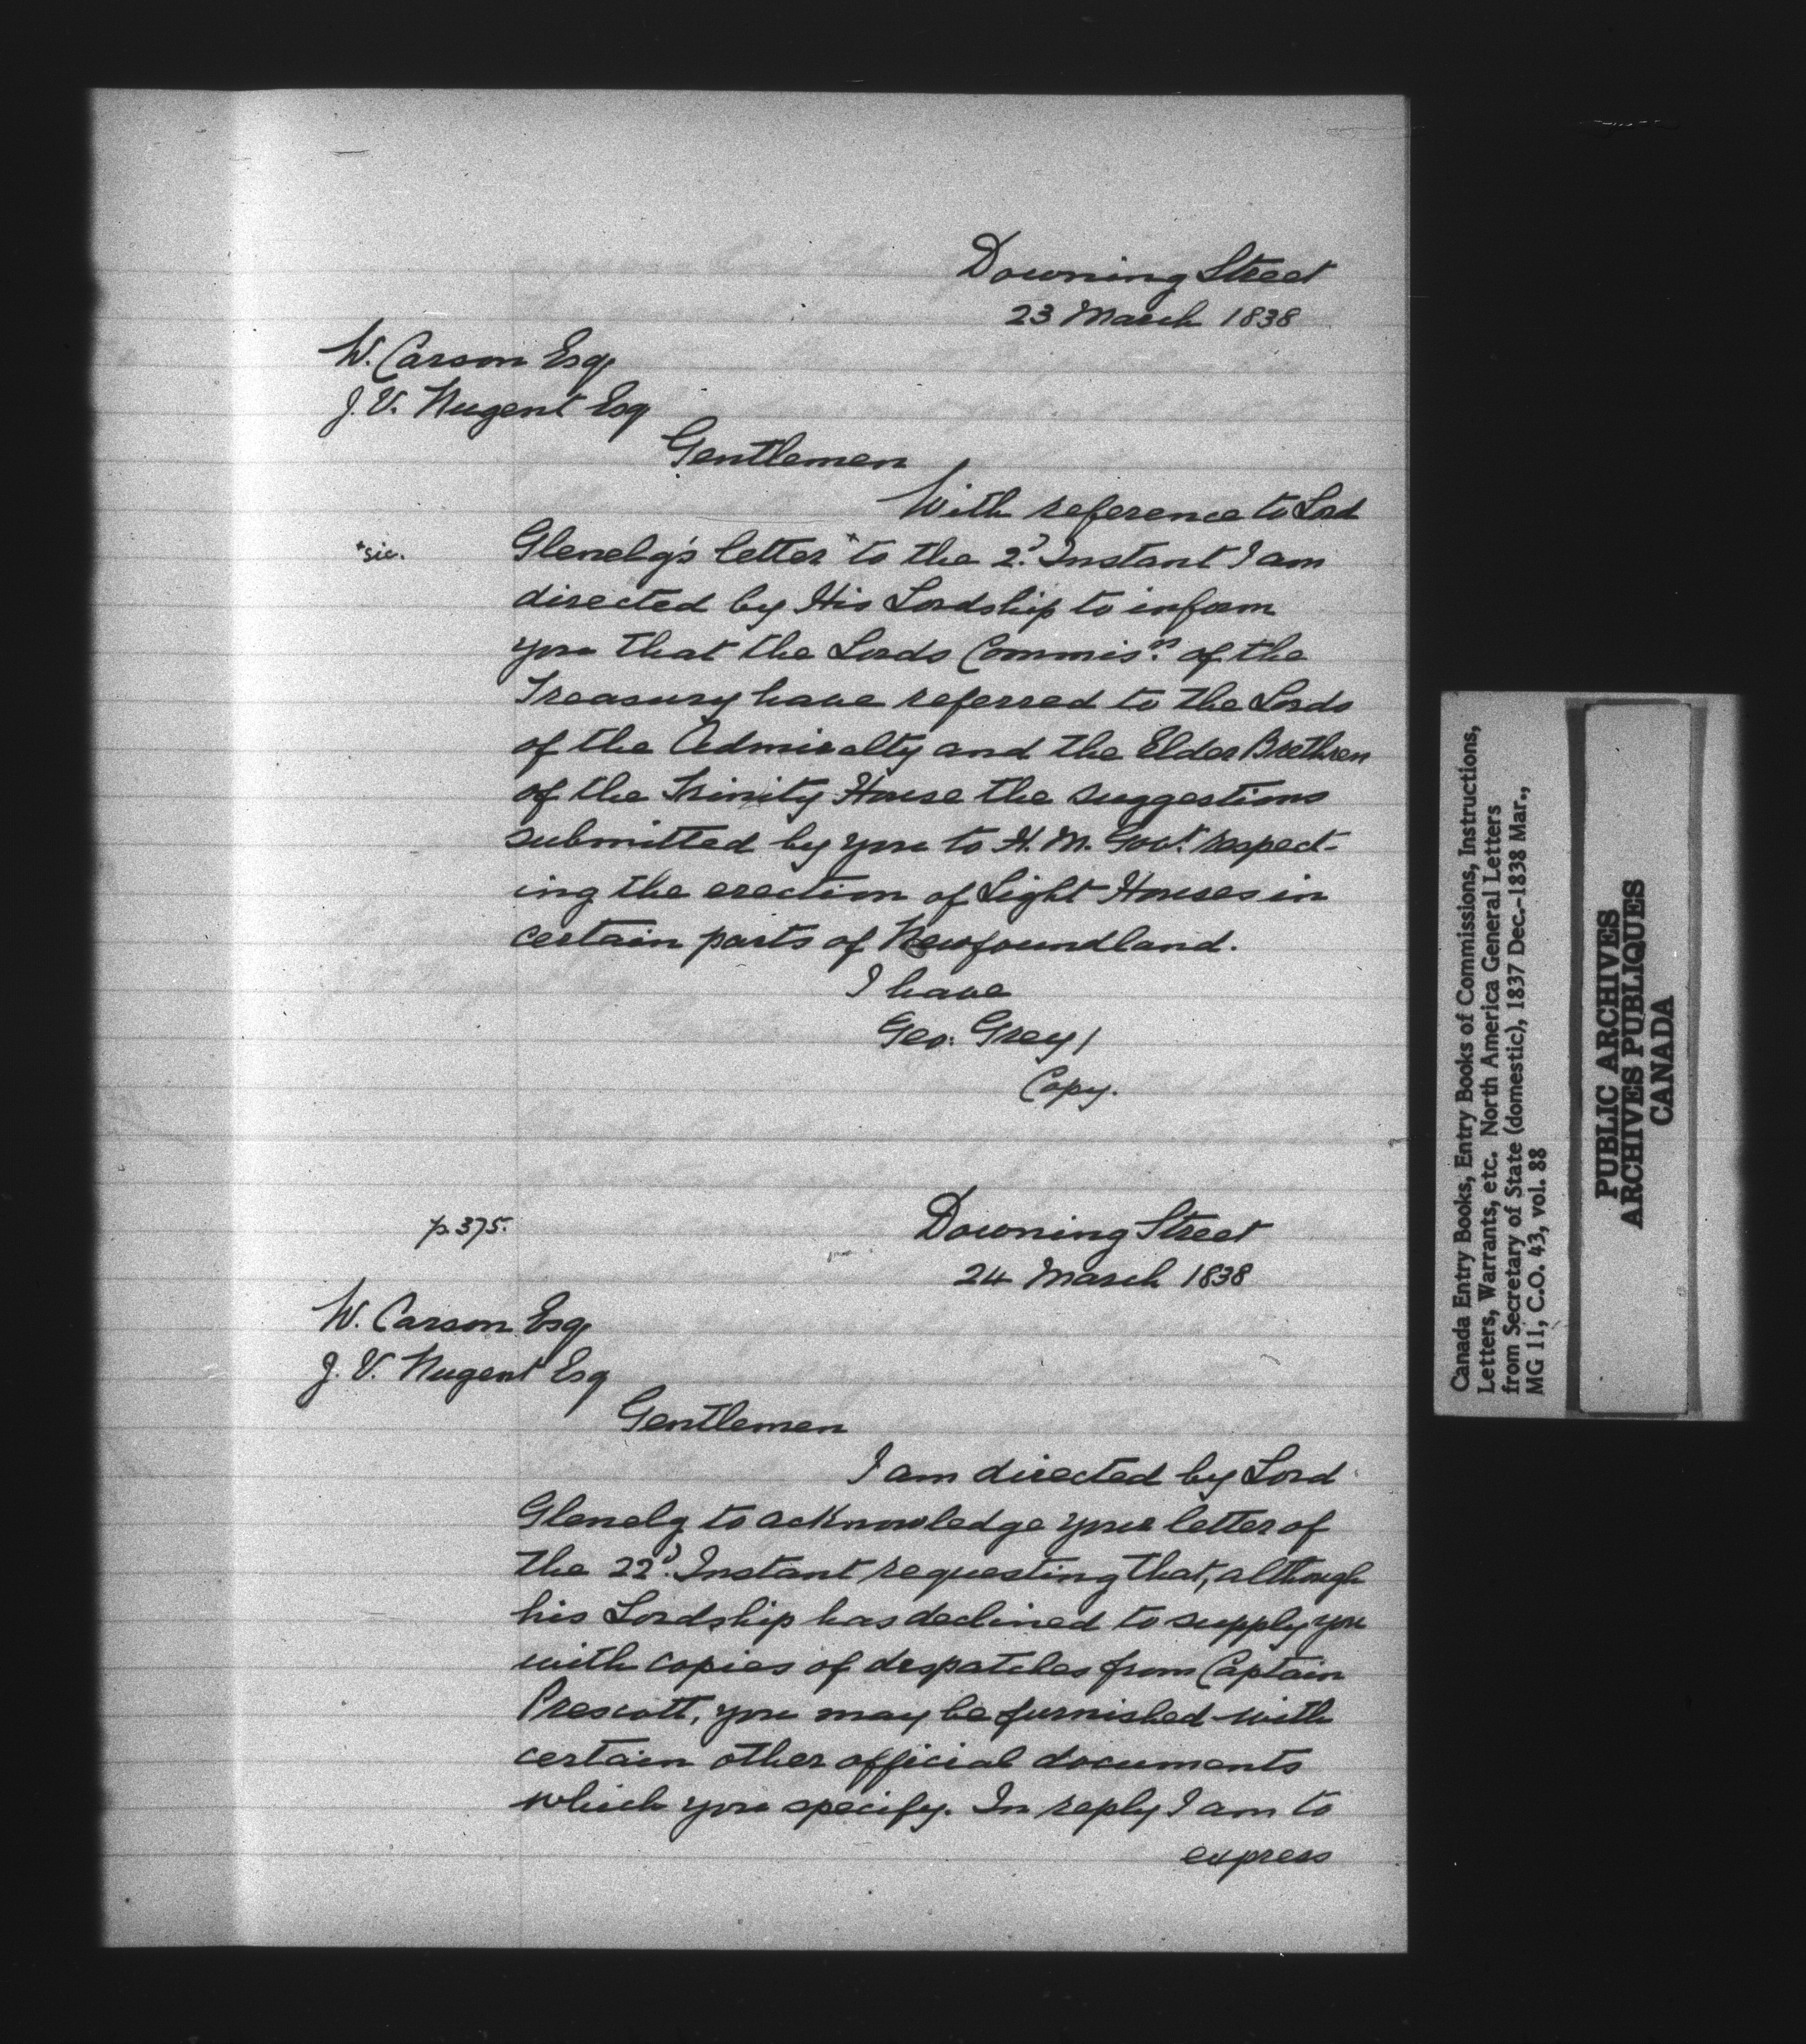 Downing Street
23 March 1838
W. Carson Esq
J. V. Nugent Esq
Gentlemen
With reference to Lord
+sic. Glenelg's letter + to the 2d. Instant I am
directed by His Lordship to inform
you that the Lords Commisrs. of the
Treasury have referred to the Lords
of the Admiralty and the Elder Brethren
of the Trinity House the suggestions
submitted by you to H. M. Govt. respect-
ing the erection of Light Houses in
certain parts of Newfoundland.
I have
Geo. Grey/
Copy.
p. 375.
Downing Street
24 March 1838
W. Carson Esq
J. V. Nugent Esq
Gentlemen
I am directed by Lord
Glenelg to acknowledge your letter of
the 22d. Instant requesting that, although
his Lordship has declined to supply you
with copies of despatches from Captain
Prescott, you may be furnished with
certain other official documents
which you specify. In reply I am to
express
Canada Entry Books, Entry Books of Commissions, Instructions,
Letters, Warrants, etc. North America General Letters
from Secretary of State (domestic), 1837 Dec.-1838 Mar.,
MG 11, C.O. 43, vol. 88
PUBLIC ARCHIVES
ARCHIVES PUBLIQUES
CANADA